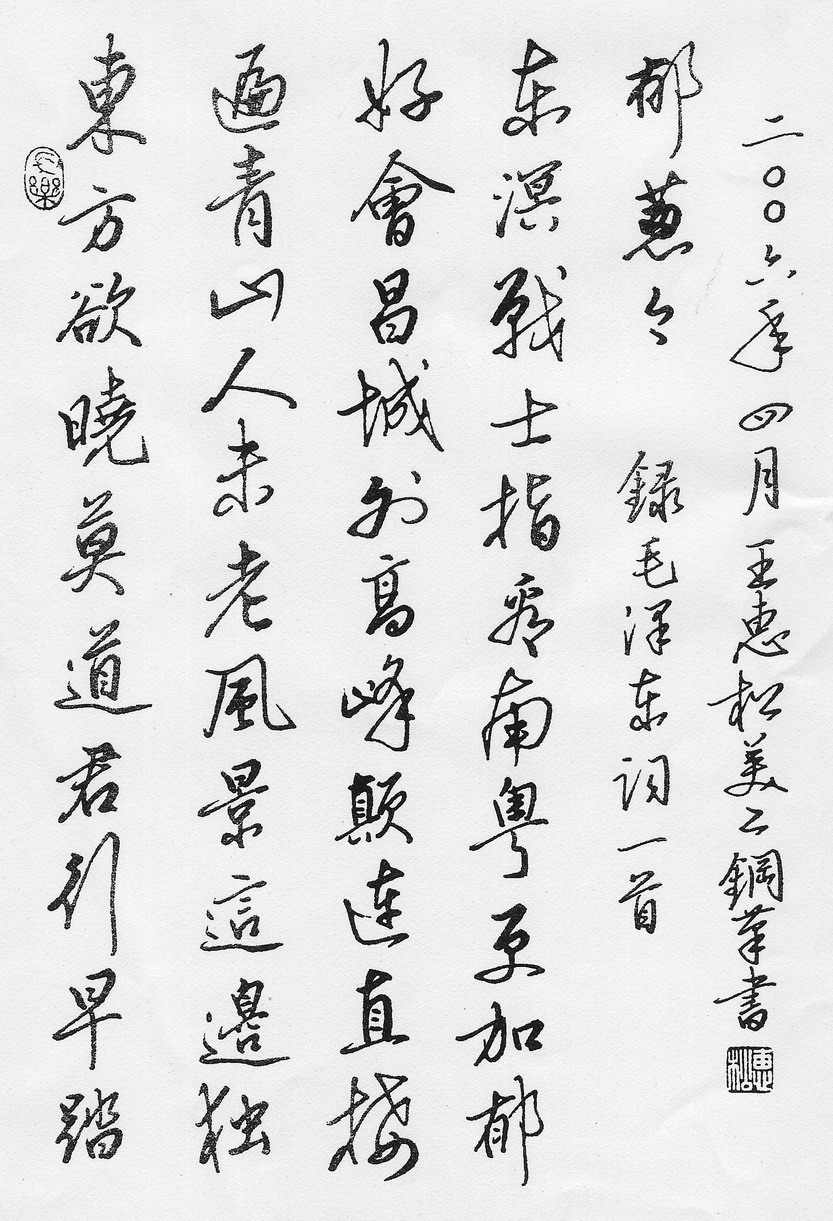 東方欲曉莫道君行早踏
遍青山人未老風景這邊独
好會昌城外高峰顛連直接
东溟戰士指看南粤更加郁
郁葱々 録毛泽东词一首
二〇〇六年四月王惠松美工鋼筆書
惠松